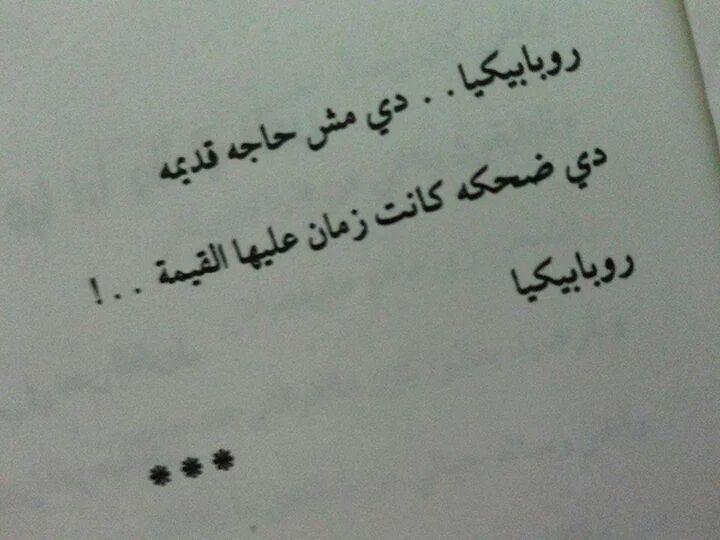 روبابيكيا . . دي مش حاجه قديمه
دي ضحكه كانت زمان عليها القيمة . . . !
روبابيكيا
***